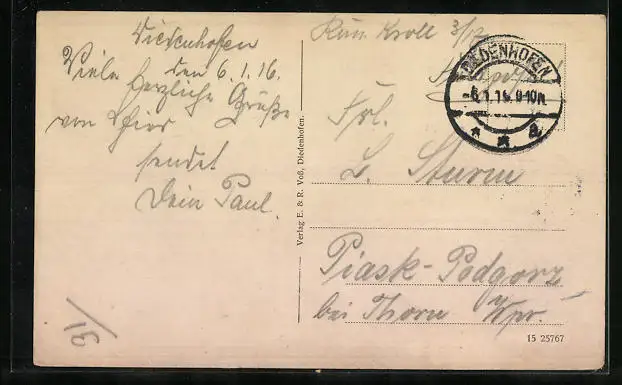 Diedenhofen
den 6.1.16.
Viele herzliche Grüße
von hier
sendet
Dein Paul.
Verlag E. & R. Voß, Diedenhofen.
Kroll
DIEDENHOFEN
* * a
Frl.
L. Sturm
Piask-Podgorz
bei Thorn Wpr.
15 25767
91/